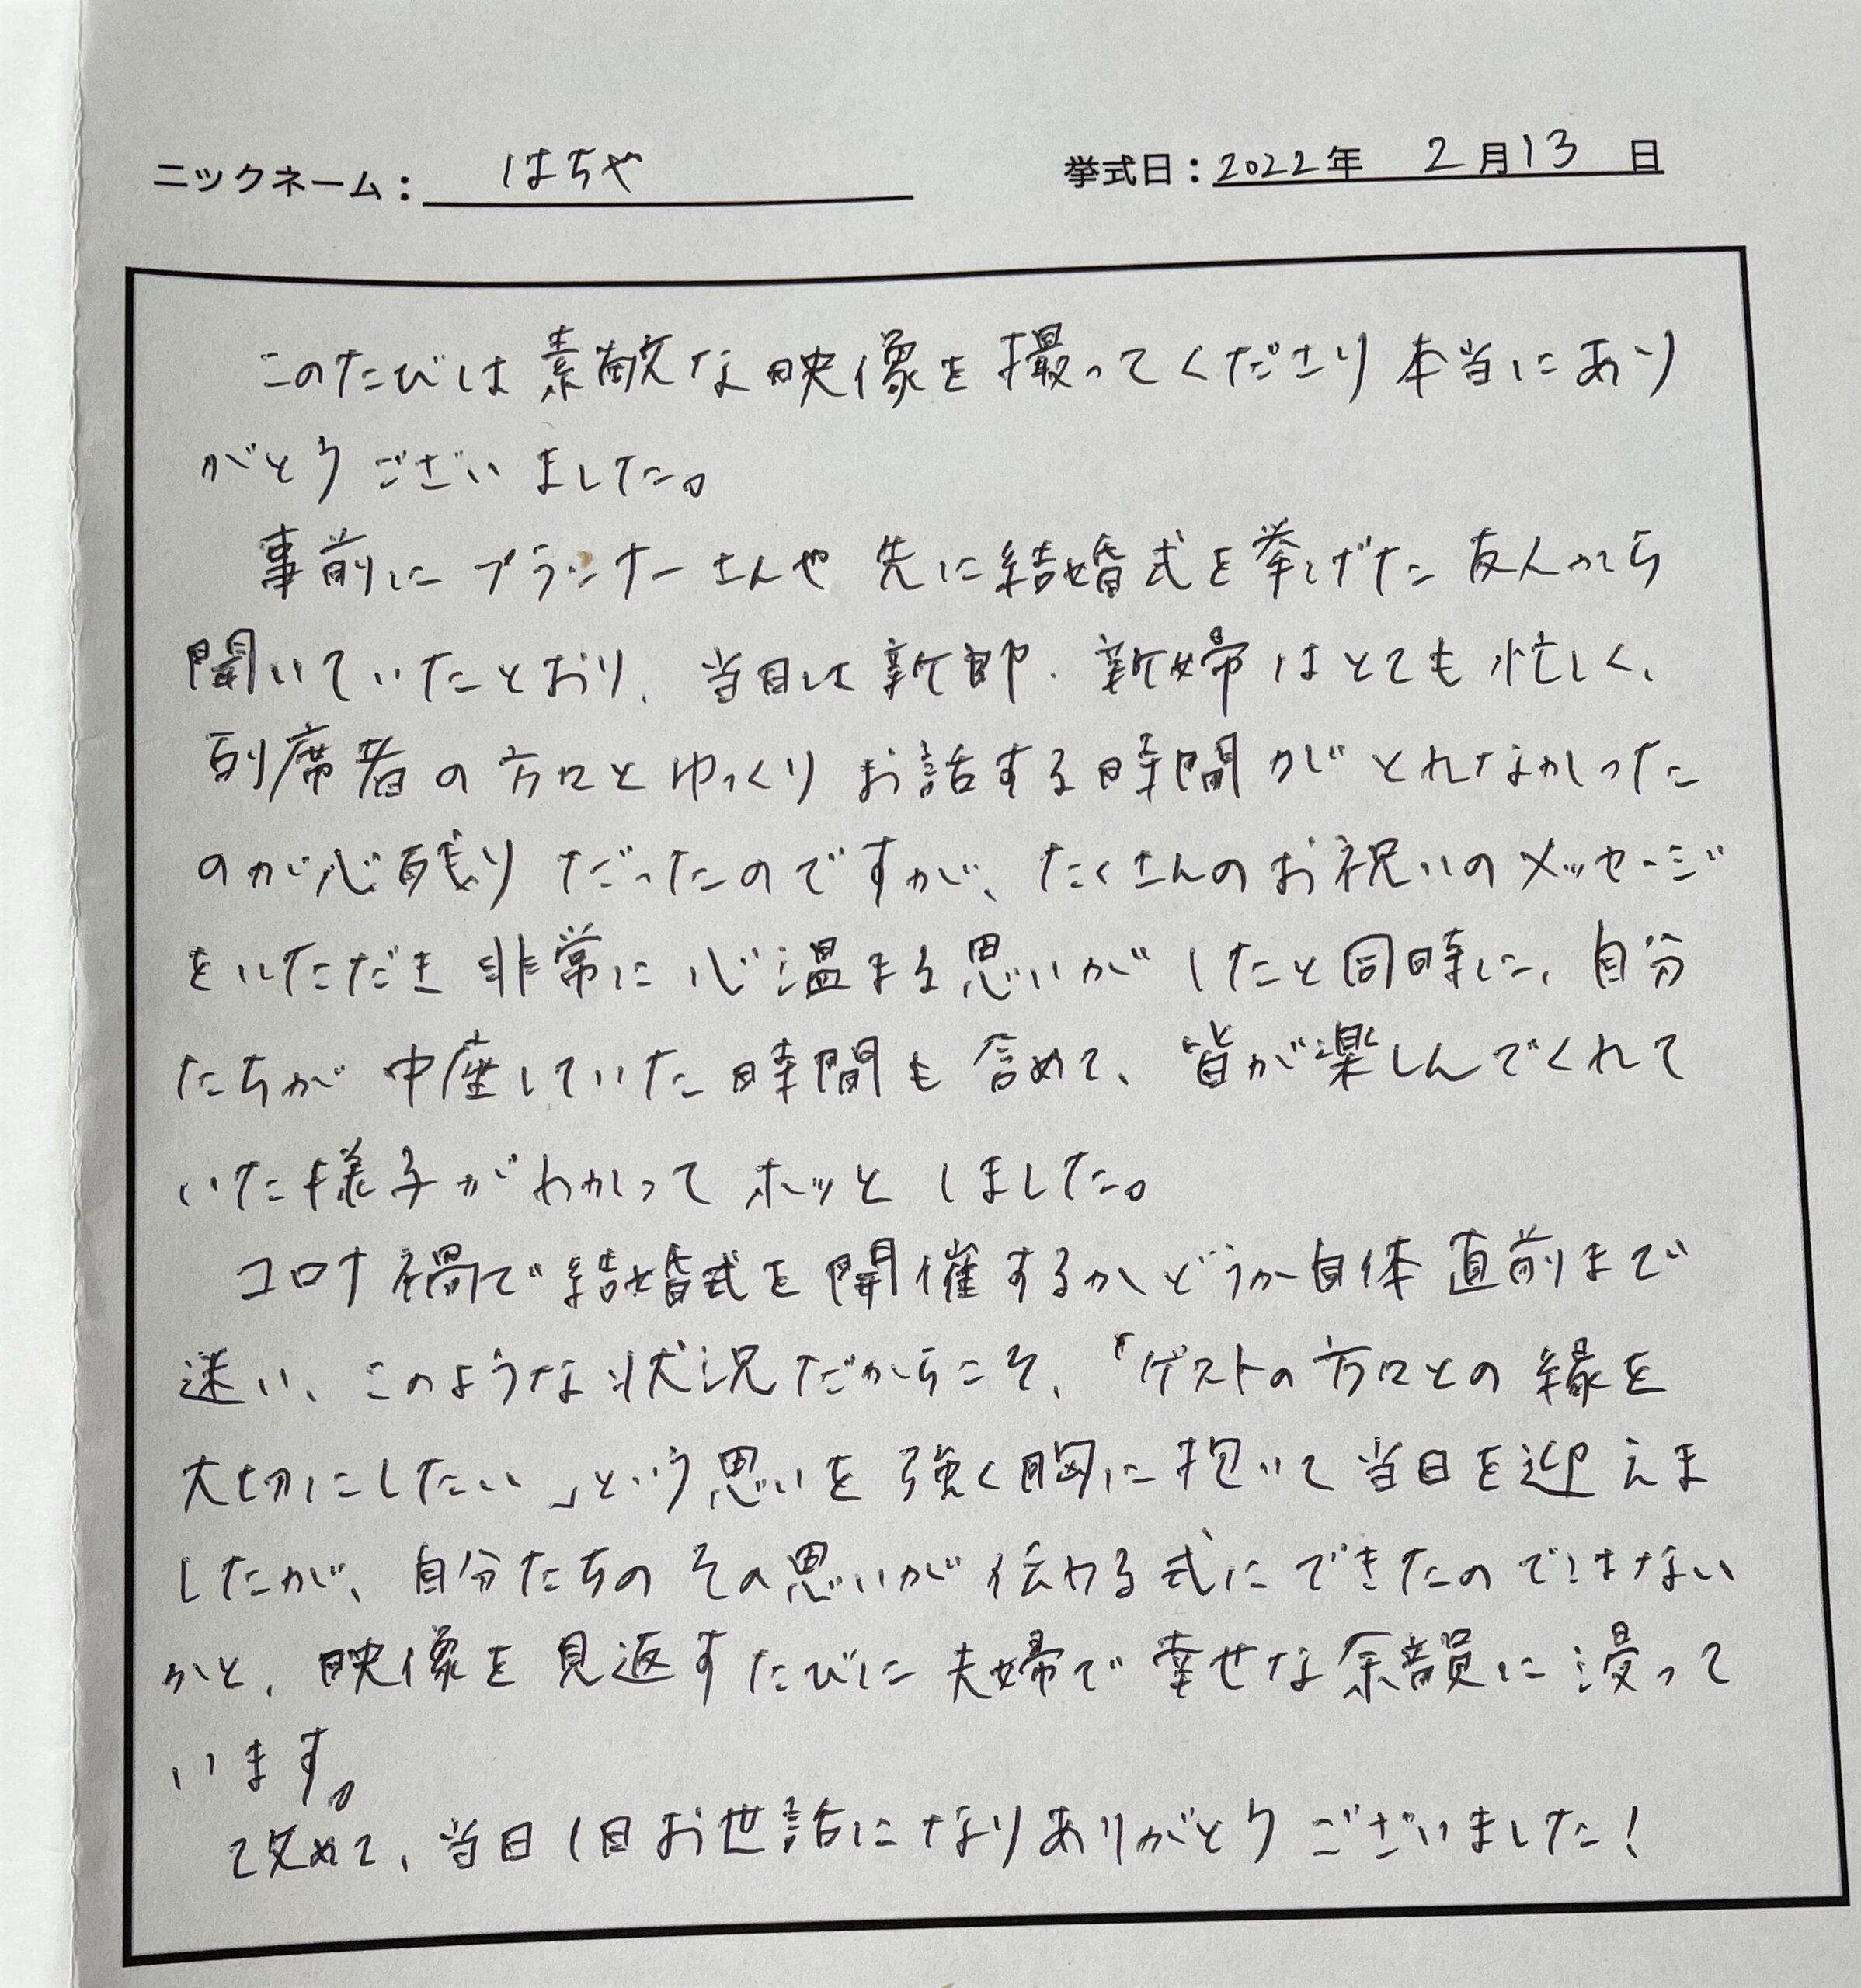 ニックネーム： はちや 挙式日：2022年 2月13日
このたびは素敵な映像を撮ってくださり本当にあり
がとうございました。
事前にプランナーさんや先に結婚式を挙げた友人から
聞いていたとおり、当日は新郎・新婦はとても忙しく、
列席者の方々とゆっくりお話する時間がとれなかった
のが心残りだったのですが、たくさんのお祝いのメッセージ
をいただき非常に心温まる思いがしたと同時に、自分
たちが中座していた時間も含めて、皆が楽しんでくれて
いた様子がわかってホッとしました。
コロナ禍で結婚式を開催するかどうか自体直前まで
迷い、このような状況だからこそ、「ゲストの方々との縁を
大切にしたい」という思いを強く胸に抱いて当日を迎えま
したが、自分たちのその思いが伝わる式にできたのではない
かと、映像を見返すたびに夫婦で幸せな余韻に浸って
います。
改めて、当日1日お世話になりありがとうございました！